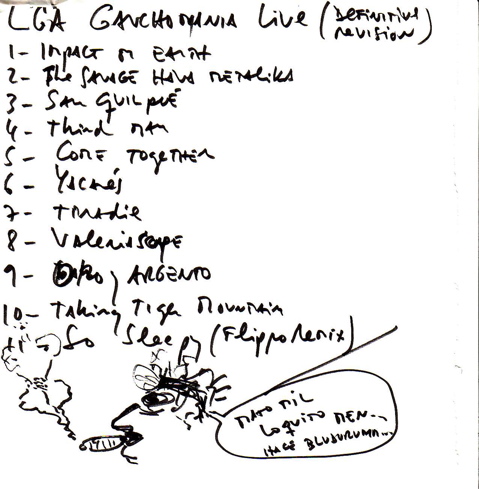 LGA GAUCHOMANIA Live (DEFINITIVE REVISION)
1- IMPACT ON EARTH
2- The SAVAGE HAVA METALIKA
3- SAN QUILPUÉ
4- Third MAN
5- COME TOGETHER
6- YACARÉS
7- TRADIE
8- Valeriascope
9- ORO y ARGENTO
10- Taking Tiger Mountain
11- So Sleepy (Flippo Remix)
MATO MIL
LOQUITO MEN...
HACE